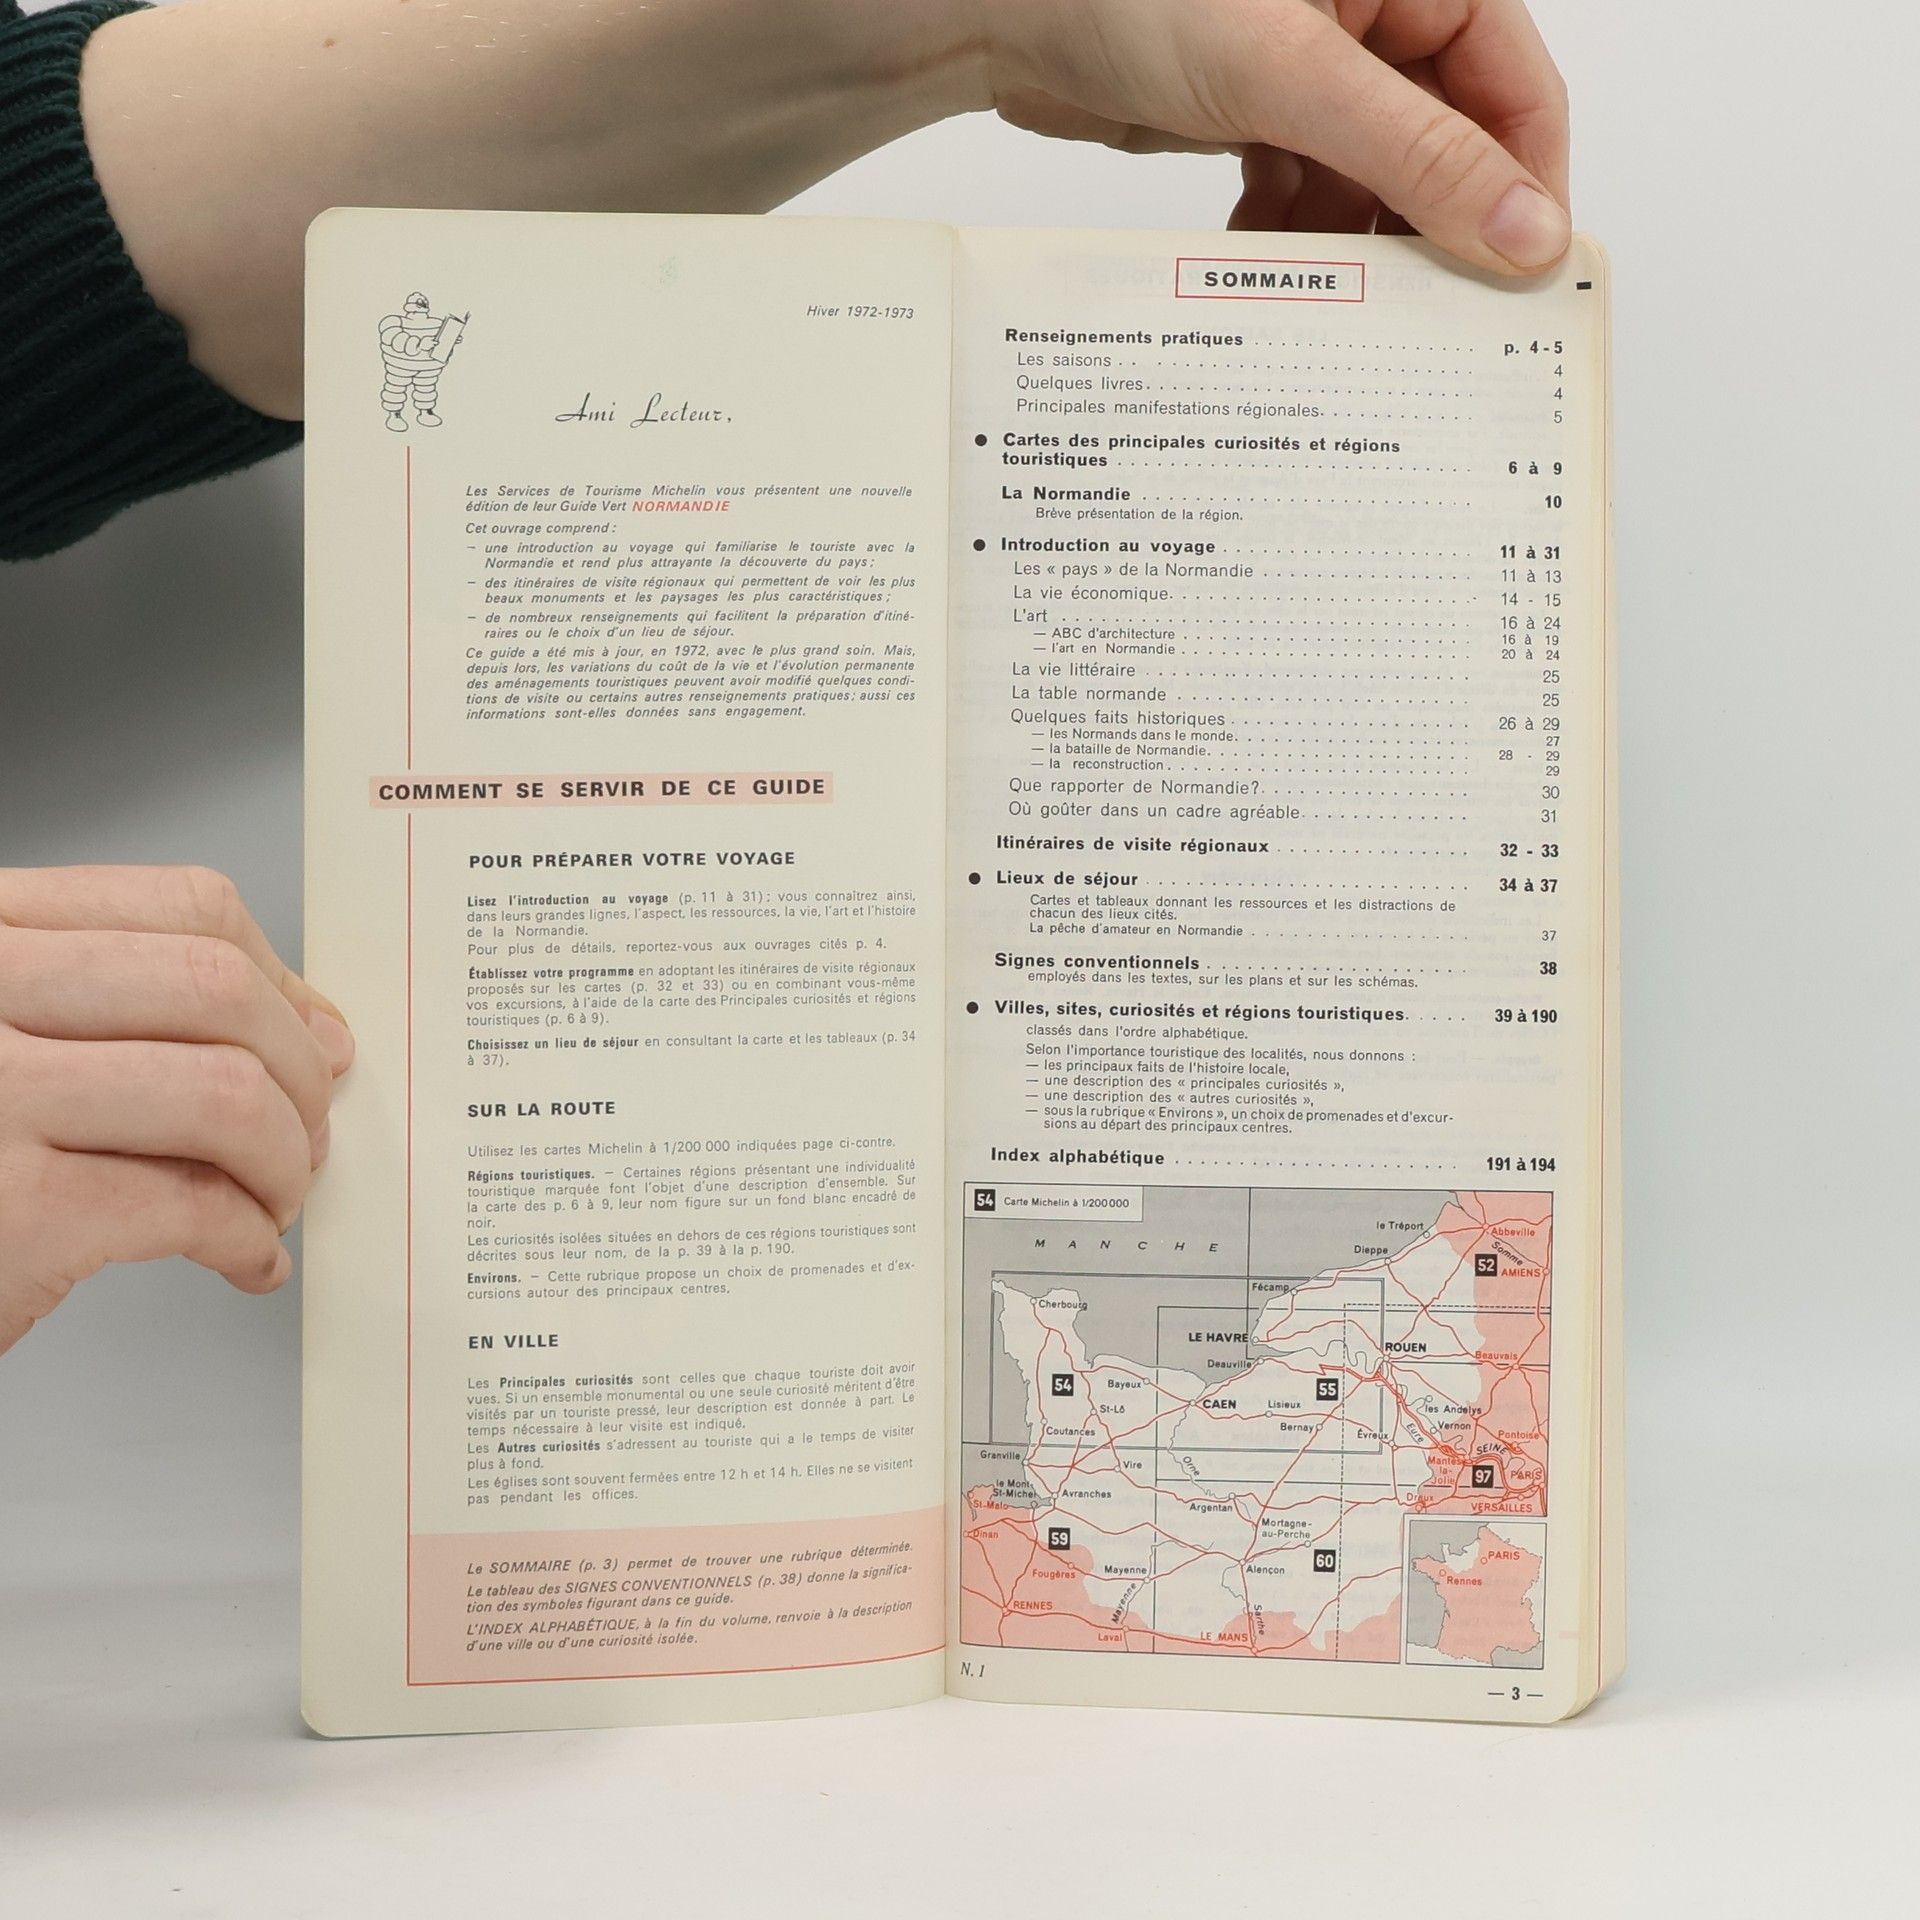 Hiver 1972-1973
Ami Lecteur,
Les Services de Tourisme Michelin vous présentent une nouvelle
édition de leur Guide Vert NORMANDIE
Cet ouvrage comprend :
— une introduction au voyage qui familiarise le touriste avec la
Normandie et rend plus attrayante la découverte du pays ;
— des itinéraires de visite régionaux qui permettent de voir les plus
beaux monuments et les paysages les plus caractéristiques ;
— de nombreux renseignements qui facilitent la préparation d'itiné-
raires ou le choix d'un lieu de séjour.
Ce guide a été mis à jour, en 1972, avec le plus grand soin. Mais,
depuis lors, les variations du coût de la vie et l'évolution permanente
des aménagements touristiques peuvent avoir modifié quelques condi-
tions de visite ou certains autres renseignements pratiques ; aussi ces
informations sont-elles données sans engagement.
COMMENT SE SERVIR DE CE GUIDE
POUR PRÉPARER VOTRE VOYAGE
Lisez l'introduction au voyage (p. 11 à 31) ; vous connaîtrez ainsi,
dans leurs grandes lignes, l'aspect, les ressources, la vie, l'art et l'histoire
de la Normandie.
Pour plus de détails, reportez-vous aux ouvrages cités p. 4.
Établissez votre programme en adoptant les itinéraires de visite régionaux
proposés sur les cartes (p. 32 et 33) ou en combinant vous-même
vos excursions, à l'aide de la carte des Principales curiosités et régions
touristiques (p. 6 à 9).
Choisissez un lieu de séjour en consultant la carte et les tableaux (p. 34
à 37).
SUR LA ROUTE
Utilisez les cartes Michelin à 1/200 000 indiquées page ci-contre.
Régions touristiques. — Certaines régions présentant une individualité
touristique marquée font l'objet d'une description d'ensemble. Sur
la carte des p. 6 à 9, leur nom figure sur un fond blanc encadré de
noir.
Les curiosités isolées situées en dehors de ces régions touristiques sont
décrites sous leur nom, de la p. 39 à la p. 190.
Environs. — Cette rubrique propose un choix de promenades et d'ex-
cursions autour des principaux centres.
EN VILLE
Les Principales curiosités sont celles que chaque touriste doit avoir
vues. Si un ensemble monumental ou une seule curiosité méritent d'être
visités par un touriste pressé, leur description est donnée à part. Le
temps nécessaire à leur visite est indiqué.
Les Autres curiosités s'adressent au touriste qui a le temps de visiter
plus à fond.
Les églises sont souvent fermées entre 12 h et 14 h. Elles ne se visitent
pas pendant les offices.
Le SOMMAIRE (p. 3) permet de trouver une rubrique déterminée.
Le tableau des SIGNES CONVENTIONNELS (p. 38) donne la significa-
tion des symboles figurant dans ce guide.
L'INDEX ALPHABÉTIQUE, à la fin du volume, renvoie à la description
d'une ville ou d'une curiosité isolée.
SOMMAIRE
Renseignements pratiques . . . . . p. 4 - 5
Les saisons . . . . . 4
Quelques livres . . . . . 4
Principales manifestations régionales . . . . . 5
● Cartes des principales curiosités et régions
touristiques . . . . . 6 à 9
La Normandie . . . . . 10
Brève présentation de la région.
● Introduction au voyage . . . . . 11 à 31
Les « pays » de la Normandie . . . . . 11 à 13
La vie économique . . . . . 14 - 15
L'art . . . . . 16 à 24
— ABC d'architecture . . . . . 16 à 19
— l'art en Normandie . . . . . 20 à 24
La vie littéraire . . . . . 25
La table normande . . . . . 25
Quelques faits historiques . . . . . 26 à 29
— les Normands dans le monde . . . . . 27
— la bataille de Normandie . . . . . 28 - 29
— la reconstruction . . . . . 29
Que rapporter de Normandie ? . . . . . 30
Où goûter dans un cadre agréable . . . . . 31
Itinéraires de visite régionaux . . . . . 32 - 33
● Lieux de séjour . . . . . 34 à 37
Cartes et tableaux donnant les ressources et les distractions de
chacun des lieux cités.
La pêche d'amateur en Normandie . . . . . 37
Signes conventionnels . . . . . 38
employés dans les textes, sur les plans et sur les schémas.
● Villes, sites, curiosités et régions touristiques . . . . . 39 à 190
classés dans l'ordre alphabétique.
Selon l'importance touristique des localités, nous donnons :
— les principaux faits de l'histoire locale,
— une description des « principales curiosités »,
— une description des « autres curiosités »,
— sous la rubrique « Environs », un choix de promenades et d'excur-
sions au départ des principaux centres.
Index alphabétique . . . . . 191 à 194
54 Carte Michelin à 1/200 000
MANCHE
le Tréport
Abbeville
Dieppe
Somme
52
AMIENS
Fécamp
Cherbourg
LE HAVRE
ROUEN
Deauville
Beauvais
54
Bayeux
55
CAEN
Lisieux
les Andelys
St-Lô
Bernay
Vernon
Coutances
Évreux
Eure
Pontoise
Granville
SEINE
Vire
Orne
Mantes-
la-
Jolie
97
PARIS
le Mont-
St-Michel
Avranches
St-Malo
Argentan
Dreux
VERSAILLES
Dinan
Mortagne-
au-Perche
59
60
PARIS
Fougères
Mayenne
Alençon
Rennes
Mayenne
RENNES
Sarthe
Laval
LE MANS
N. 1
— 3 —